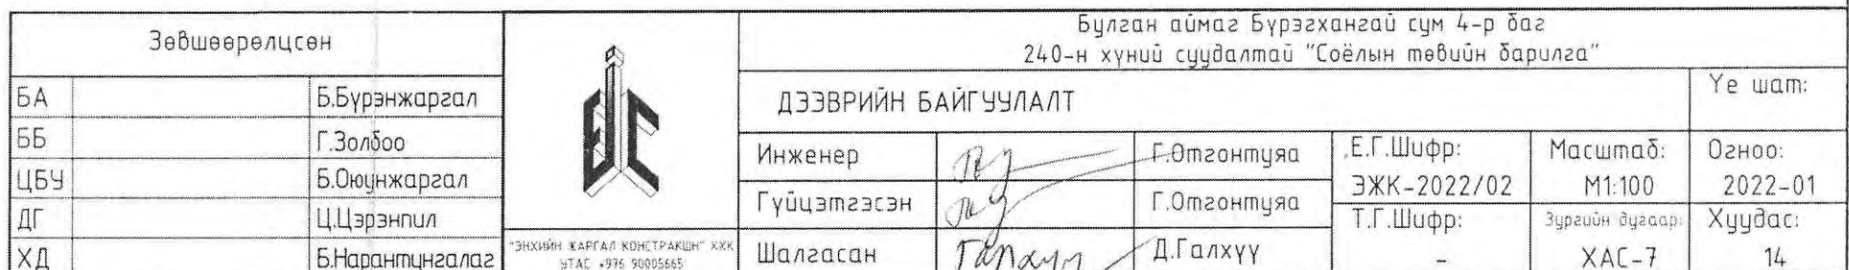 Зөвшөөрөлцсөн
БА Б.Бүрэнжаргал
ББ Г.Золбоо
ЦБУ Б.Оюунжаргал
ДГ Ц.Цэрэнпил
ХД Б.Нарантунгалаг
"ЭНХИЙН ЖАРГАЛ КОНСТРАКШН" ХХК
УТАС +976 90005665
Булган аймаг Бүрэгхангай сум 4-р баг
240-н хүний суудалтай "Соёлын төвийн барилга"
ДЭЭВРИЙН БАЙГУУЛАЛТ
Үе шат:
Инженер Г.Отгонтуяа
Гүйцэтгэсэн Г.Отгонтуяа
Шалгасан Д.Галхүү
Е.Г.Шифр:
ЭЖК-2022/02
Т.Г.Шифр:
-
Масштаб:
М1:100
Зургийн дугаар:
ХАС-7
Огноо:
2022-01
Хуудас:
14